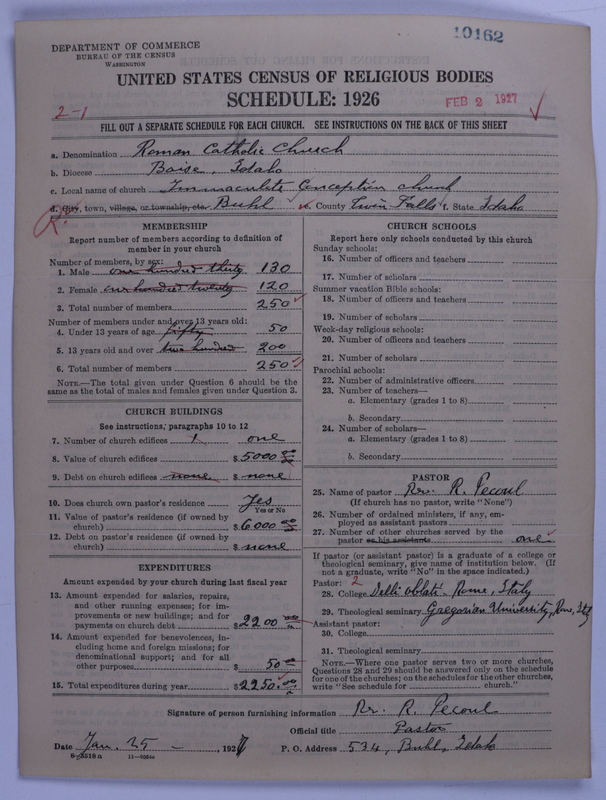 10162
DEPARTMENT OF COMMERCE
BUREAU OF THE CENSUS
WASHINGTON
UNITED STATES CENSUS OF RELIGIOUS BODIES
SCHEDULE: 1926
FEB 2 1927
2-1
FILL OUT A SEPARATE SCHEDULE FOR EACH CHURCH. SEE INSTRUCTIONS ON THE BACK OF THIS SHEET
a. Denomination Roman Catholic Church
b. Diocese Boise, Idaho
c. Local name of church Immaculate Conception church
d. City, town, village, or township, etc. Buhl e. County Twin Falls f. State Idaho
MEMBERSHIP
Report number of members according to definition of
member in your church
Number of members, by sex:
1. Male one hundred thirty 130
2. Female one hundred twenty 120
3. Total number of members 250
Number of members under and over 13 years old:
4. Under 13 years of age fifty 50
5. 13 years old and over two hundred 200
6. Total number of members 250
NOTE.—The total given under Question 6 should be
same as the total of males and females given under Question 3.
CHURCH BUILDINGS
See instructions, paragraphs 10 to 12
7. Number of church edifices 1 one
8. Value of church edifices $5000 00
9. Debt on church edifices none $ none
10. Does church own pastor's residence Yes
Yes or No
11. Value of pastor's residence (if owned by
church) $6000 00
12. Debt on pastor's residence (if owned by
church) $ none
EXPENDITURES
Amount expended by your church during last fiscal year
13. Amount expended for salaries, repairs,
and other running expenses; for im-
provements or new buildings; and for
payments on church debt $2200
14. Amount expended for benevolences, in-
cluding home and foreign missions; for
denominational support; and for all
other purposes $50 00
15. Total expenditures during year $2250.
CHURCH SCHOOLS
Report here only schools conducted by this church
Sunday schools:
16. Number of officers and teachers
17. Number of scholars
Summer vacation Bible schools:
18. Number of officers and teachers
19. Number of scholars
Week-day religious schools:
20. Number of officers and teachers
21. Number of scholars
Parochial schools:
22. Number of administrative officers
23. Number of teachers—
a. Elementary (grades 1 to 8)
b. Secondary
24. Number of scholars—
a. Elementary (grades 1 to 8)
b. Secondary
PASTOR
25. Name of pastor Rev. R. Pecoul
(If church has no pastor, write "None")
26. Number of ordained ministers, if any, em-
ployed as assistant pastors
27. Number of other churches served by the
pastor or his assistants one
If pastor (or assistant pastor) is a graduate of a college or
theological seminary, give name of institution below. (If
not a graduate, write "No" in the space indicated.)
Pastor: 2
28. College Delli Oblati - Rome, Italy
29. Theological seminary Gregorian University, Rome, Italy
Assistant pastor:
30. College
31. Theological seminary
NOTE.—Where one pastor serves two or more churches,
Questions 28 and 29 should be answered only on the schedule
for one of the churches; on the schedules for the other churches,
write "See schedule for church."
Signature of person furnishing information Rev. R. Pecoul
Official title Pastor
Date Jan. 25 - , 1927 P. O. Address 534, Buhl, Idaho